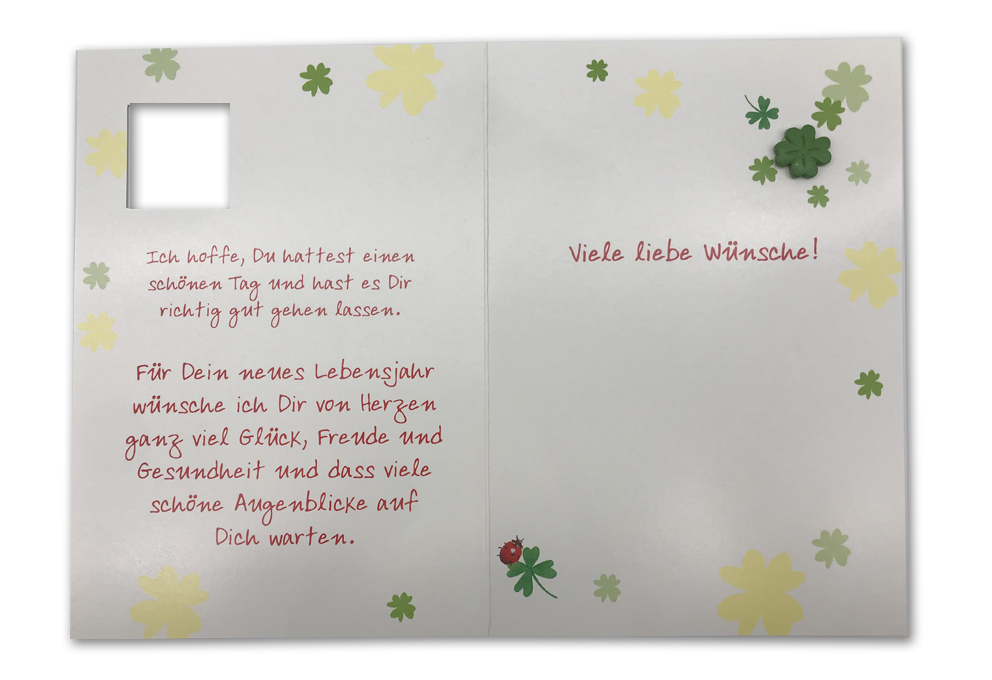 Ich hoffe, Du hattest einen
schönen Tag und hast es Dir
richtig gut gehen lassen.
Für Dein neues Lebensjahr
wünsche ich Dir von Herzen
ganz viel Glück, Freude und
Gesundheit und dass viele
schöne Augenblicke auf
Dich warten.
Viele liebe Wünsche!